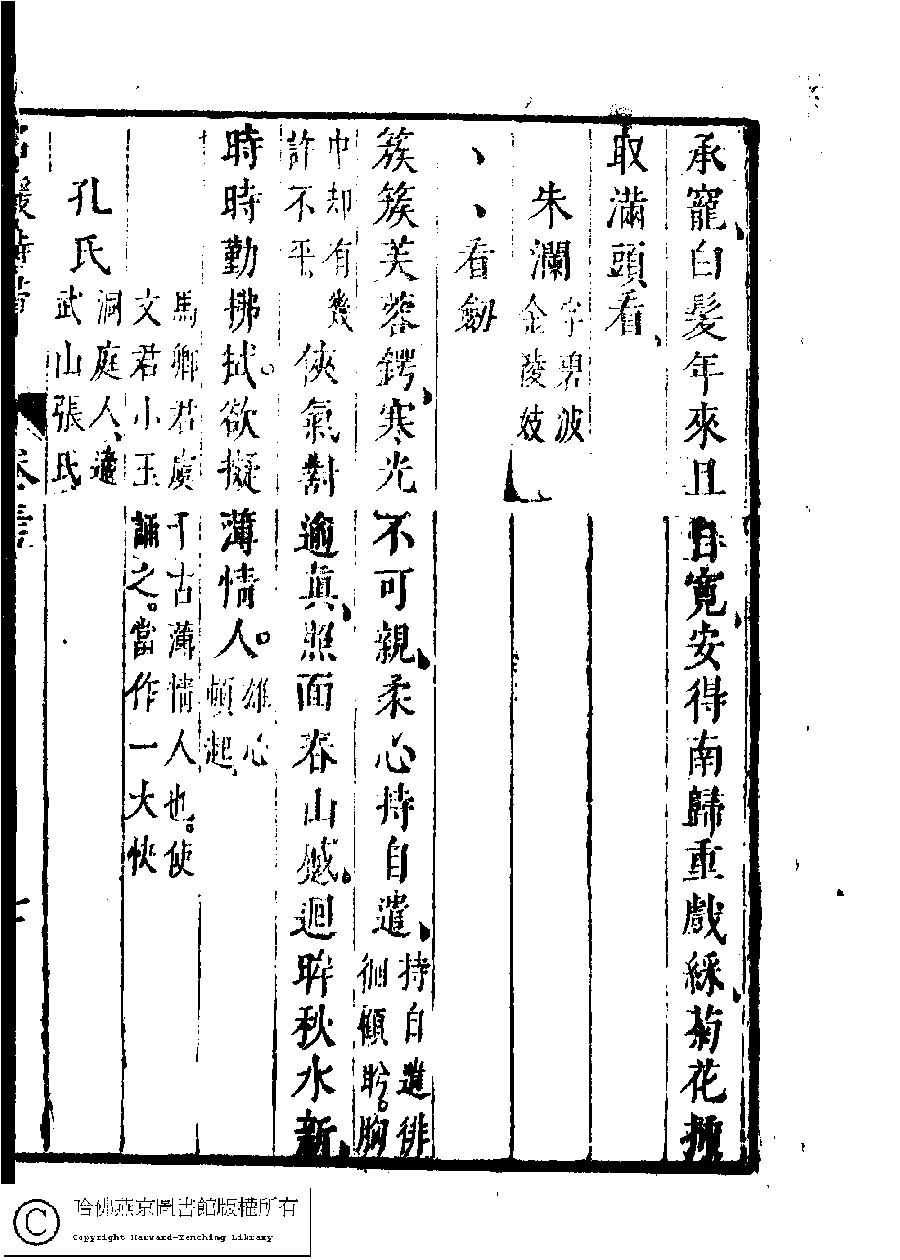 承寵、白髮年來且自寬、安得南歸重戲綵、菊花
取滿頭看、
朱瀾
字碧波
金陵妓
、、看劒
簇簇芙蓉鍔、寒光不可親、柔心持自遣、
持自遣徘
徊傾盻。胸
中却有幾
許不平
俠氣對逾真、照面春山慼。迴眸秋水新、
時時勤拂拭。欲擬薄情人。
雄心
頓起、
馬卿君虞千古薄情人也。使
文君小玉誦之。當作一大快
孔氏
洞庭人、適
武山張氏
哈佛燕京圖書館版權所有
Copyright Harvard-Yenching Library